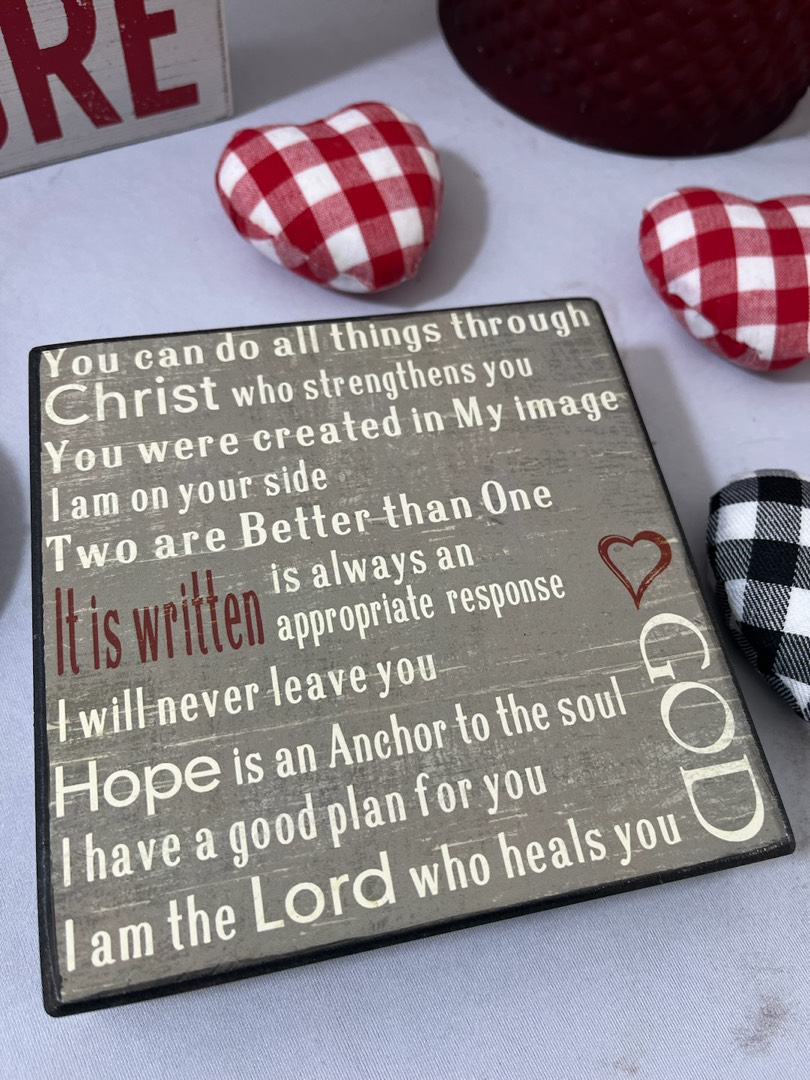 You can do all things through
Christ who strengthens you
You were created in My image
I am on your side
Two are Better than One
It is written is always an
appropriate response
I will never leave you
Hope is an Anchor to the soul
I have a good plan for you
I am the Lord who heals you
GOD